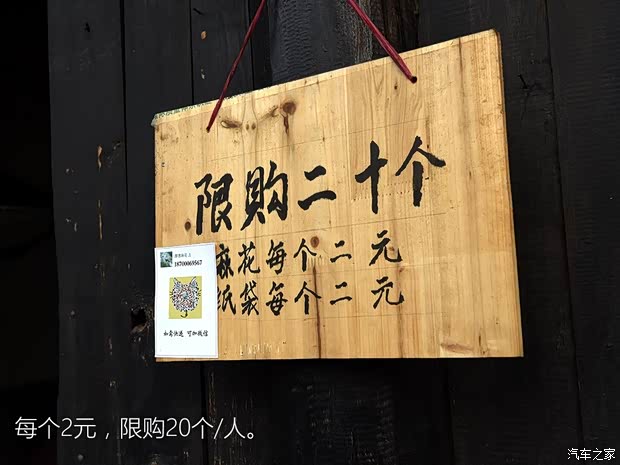 限购二十个
麻花每个二元
纸袋每个二元
18700069567
如需快递 可加微信
每个2元，限购20个/人。
汽车之家